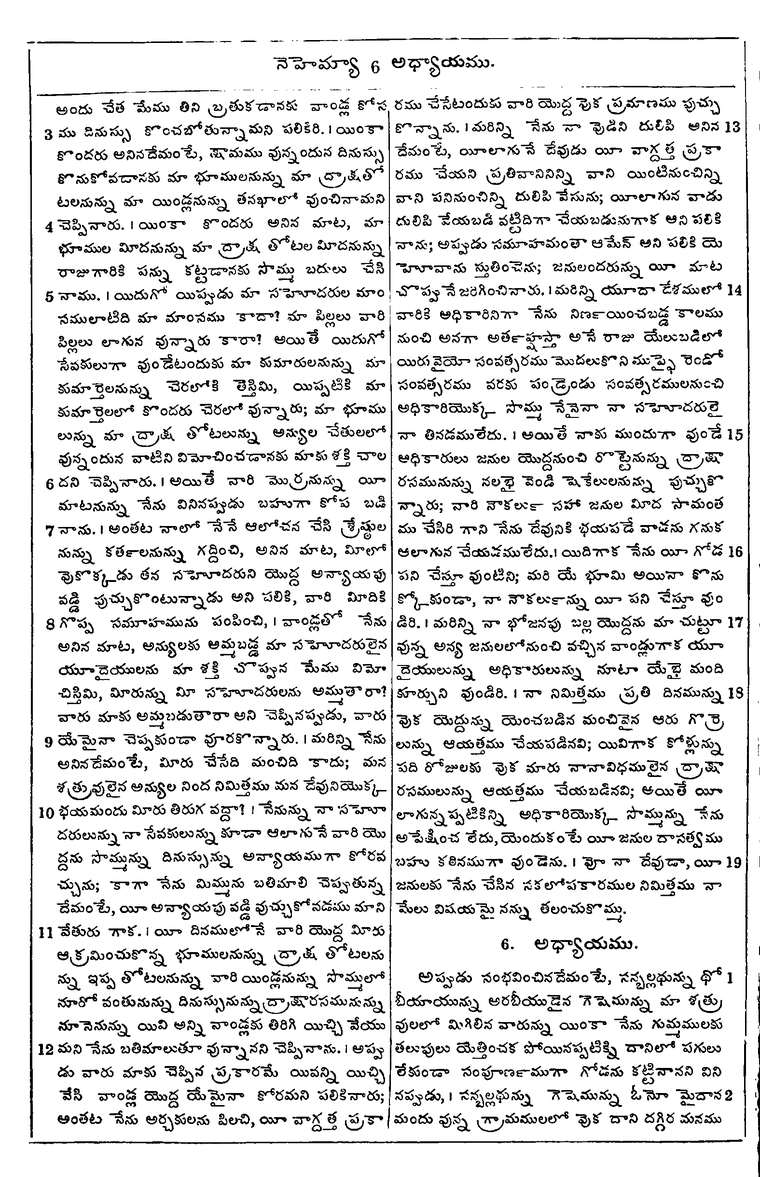 నెహెమ్యా 6 అధ్యాయము.
అందు చేత మేము తిని బ్రతుకడానకు వాండ్ల కోస
3 ము దినుస్సు కొంచబోతున్నామని పలికిరి. । యింకా
కొందరు అనినదేమంటే, షామము వున్నందున దినుస్సు
కొనుకోవడానకు మా భూములనున్ను మా ద్రాక్షతో
టలనున్ను మా యిండ్లనున్ను తనఖాలో వుంచినామని
4 చెప్పినారు. । యింకా కొందరు అనిన మాట, మా
భూముల మీదనున్ను మా ద్రాక్ష తోటల మీదనున్ను
రాజుగారికి పన్ను కట్టడానకు సొమ్ము బదులు చేసి
5 నాము. । యిదుగో యిప్పుడు మా సహోదరుల మాం
సములాటిది మా మాంసము కాదా? మా పిల్లలు వారి
పిల్లలు లాగున వున్నారు కారా? అయితే యిదుగో
సేవకులుగా వుండేటందుకు మా కుమారులనున్ను మా
కుమార్తెలనున్ను చెరలోకి తెస్తిమి, యిప్పటికి మా
కుమార్తెలలో కొందరు చెరలో వున్నారు; మా భూము
లున్ను మా ద్రాక్ష తోటలున్ను అన్యుల చేతులలో
వున్నందున వాటిని విమోచించడానకు మాకు శక్తి చాల
6 దని చెప్పినారు. । అయితే వారి మొర్రనున్ను యీ
మాటనున్ను నేను వినినప్పుడు బహుగా కోప బడి
7 నాను. । అంతట నాలో నేనే ఆలోచన చేసి శ్రేష్ఠుల
నున్ను కర్తలనున్ను గద్దించి, అనిన మాట, మీలో
వొకొక్కడు తన సహోదరుని యొద్ద అన్యాయపు
వడ్డి పుచ్చుకొంటున్నాడు అని పలికి, వారి మీదికి
8 గొప్ప సమూహమును పంపించి, । వాండ్లతో నేను
అనిన మాట, అన్యులకు అమ్మబడ్డ మా సహోదరులైన
యూదైయులను మా శక్తి చొప్పున మేము విమో
చిస్తిమి, మీరున్ను మీ సహోదరులను అమ్ముతారా?
వారు మాకు అమ్మబడుతారా అని చెప్పినప్పుడు, వారు
9 యేమైనా చెప్పకుండా వూరకొన్నారు. । మరిన్ని నేను
అనినదేమంటే, మీరు చేసేది మంచిది కాదు; మన
శత్రువులైన అన్యుల నింద నిమిత్తము మన దేవునియొక్క
10 భయమందు మీరు తిరుగ వద్దా? । నేనున్ను నా సహో
దరులున్ను నా సేవకులున్ను కూడా ఆలాగునే వారి యొ
ద్దను సొమ్మున్ను దినుస్సున్ను అన్యాయముగా కోరవ
చ్చును; కాగా నేను మిమ్మును బతిమాలి చెప్పుతున్న
దేమంటే, యీ అన్యాయపు వడ్డి వుచ్చుకోవడము మాని
11 వేతురు గాక. । యీ దినములోనే వారి యొద్ద మీరు
ఆక్రమించుకొన్న భూములనున్ను ద్రాక్ష తోటలను
న్ను ఇప్ప తోటలనున్ను వారి యిండ్లనున్ను సొమ్ములో
నూరో వంతునున్ను దినుస్సునున్ను ద్రాక్షారసమునున్ను
నూనెనున్ను యివి అన్ని వాండ్లకు తిరిగి యిచ్చి వేయు
12 మని నేను బతిమాలుతూ వున్నానని చెప్పినాను. । అప్పు
డు వారు మాకు చెప్పిన ప్రకారమే యివన్ని యిచ్చి
వేసి వాండ్ల యొద్ద యేమైనా కోరమని పలికినారు;
అంతట నేను అర్చకులను పిలచి, యీ వాగ్దత్త ప్రకా
రము చేసేటందుకు వారి యొద్ద వొక ప్రమాణము పుచ్చు
కొన్నాను. । మరిన్ని నేను నా వొడిని దులిపి అనిన 13
దేమంటే, యీలాగునే దేవుడు యీ వాగ్దత్త ప్రకా
రము చేయని ప్రతివానినిన్ని వాని యింటినుంచిన్ని
వాని పనినుంచిన్ని దులిపి వేసును; యీలాగున వాడు
దులిపి వేయబడి వట్టిదిగా చేయబడునుగాక ఆని పలికి
నాను; అప్పుడు సమూహమంతా ఆమేన్ ఆని పలికి యె
హోవాను స్తుతించెను; జనులందరున్ను యీ మాట
చొప్పునే జరిగించినారు. । మరిన్ని యూదా దేశములో 14
వారికి అధికారినిగా నేను నిర్ణయించబడ్డ కాలము
నుంచి అనగా అర్తహ్షస్తా అనే రాజు యేలుబడిలో
యిరువైయో సంవత్సరము మొదలుకొని ముప్ఫై రెండో
సంవత్సరము వరకు పండ్రెండు సంవత్సరములనుంచి
అధికారియొక్క సొమ్ము నేనైనా నా సహోదరులై
నా తినడములేదు. । అయితే నాకు ముందుగా వుండే 15
ఆధికారులు జనుల యొద్దనుంచి రొట్టెనున్ను ద్రాక్షా
రసమునున్ను నలభై వెండి షెకేలులనున్ను పుచ్చుకొ
న్నారు; వారి నౌకర్లు సహా జనుల మీద సామంత
ము చేసిరి గాని నేను దేవునికి భయపడే వాడను గనుక
ఆలాగున చేయడములేదు. । యిదిగాక నేను యీ గోడ 16
పని చేస్తూ వుంటిని; మరి యే భూమి అయినా కొను
క్కోకుండా, నా నౌకర్లున్ను యీ పని చేస్తూ వుం
డిరి. । మరిన్ని నా భోజనపు బల్ల యొద్దను మా చుట్టూ 17
వున్న అన్య జనులలోనుంచి వచ్చిన వాండ్లుగాక యూ
దైయులున్ను అధికారులున్ను నూటా యేభై మంది
కూర్చుని వుండిరి. । నా నిమిత్తము ప్రతి దినమున్ను 18
వొక యెద్దున్ను యెంచబడిన మంచివైన ఆరు గొర్రె
లున్ను ఆయత్తము చేయపడినవి; యివిగాక కోళ్లున్ను
పది రోజులకు వొక మారు నానావిధములైన ద్రాక్షా
రసములున్ను ఆయత్తము చేయబడినవి; అయితే యీ
లాగున్నప్పటికిన్ని అధికారియొక్క సొమ్మున్ను నేను
అపేక్షించ లేదు, యెందుకంటే యీ జనుల దాసత్వము
బహు కఠినముగా వుండెను. । వో నా దేవుడా, యీ 19
జనులకు నేను చేసిన సకలోపకారముల నిమిత్తము నా
మేలు విషయమై నన్ను తలంచుకొమ్ము.
6. అధ్యాయము.
అప్పుడు సంభవించినదేమంటే, సన్బల్లథున్ను థో 1
బీయాయున్ను అరబీయుడైన గెషెమున్ను మా శత్రు
వులలో మిగిలిన వారున్ను యింకా నేను గుమ్మములకు
తలుపులు యెత్తించక పోయినప్పటికిన్ని దానిలో పగులు
లేకుండా సంపూర్ణముగా గోడను కట్టినానని విని
నప్పుడు, । సన్బల్లథున్ను గెషెమున్ను ఓనో మైదాన 2
మందు వున్న గ్రామములలో వొక దాని దగ్గిర మనము